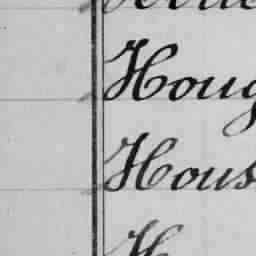 Houg
Hous
H